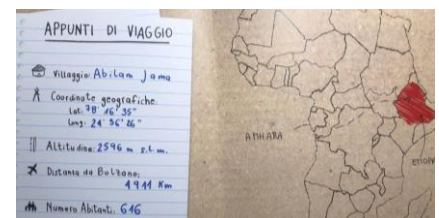 APPUNTI DI VIAGGIO
Villaggio: Abilam Jama
Coordinate geografiche:
Lat: 78° 46' 35"
Long: 24° 56' 26"
Altitudine: 2596 m s.l.m.
Distanza da Bolzano:
4911 Km
Numero Abitanti: 646
AMHARA
ETIOPIA